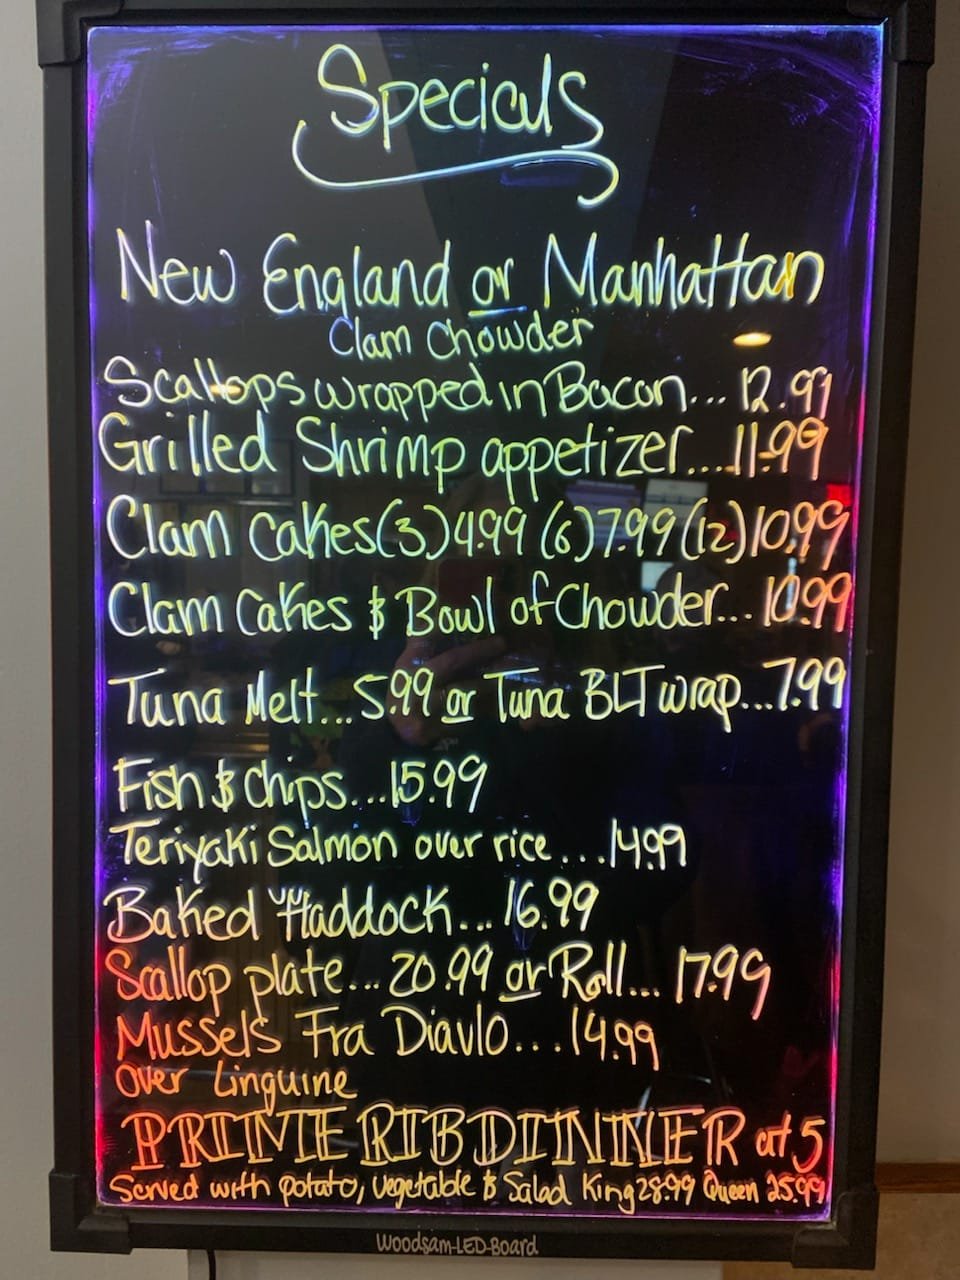 Specials
New England or Manhattan
Clam Chowder
Scallops wrapped in Bacon... 12.99
Grilled Shrimp appetizer....11.99
Clam Cakes (3) 4.99 (6) 7.99 (12) 10.99
Clam Cakes & Bowl of Chowder... 10.99
Tuna Melt...5.99 or Tuna BLT wrap...7.99
Fish & Chips...15.99
Teriyaki Salmon over rice ...14.99
Baked Haddock... 16.99
Scallop plate... 20.99 or Roll... 17.99
Mussels Fra Diavlo...14.99
over Linguine
PRIME RIB DINNER at 5
Served with potato, vegetable & Salad King 28.99 Queen 25.99
Woodsam-LED-Board